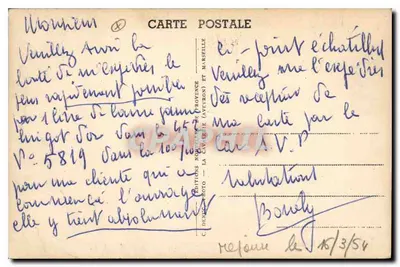 CARTE POSTALE
Monsieur
Veuillez avoir la
bonté de m'expédier le
plus rapidement possible
par 1 livre de laine
lingot d'or dans le 455
N° 5819 dans la
pour ma cliente qui a
commencé l'ouvrage
elle y tient absolument
ci-joint échantillon
Veuillez me l'expédier
dès réception de
ma carte par le
car S.V.P
Salutations
réponse le 15/3/54